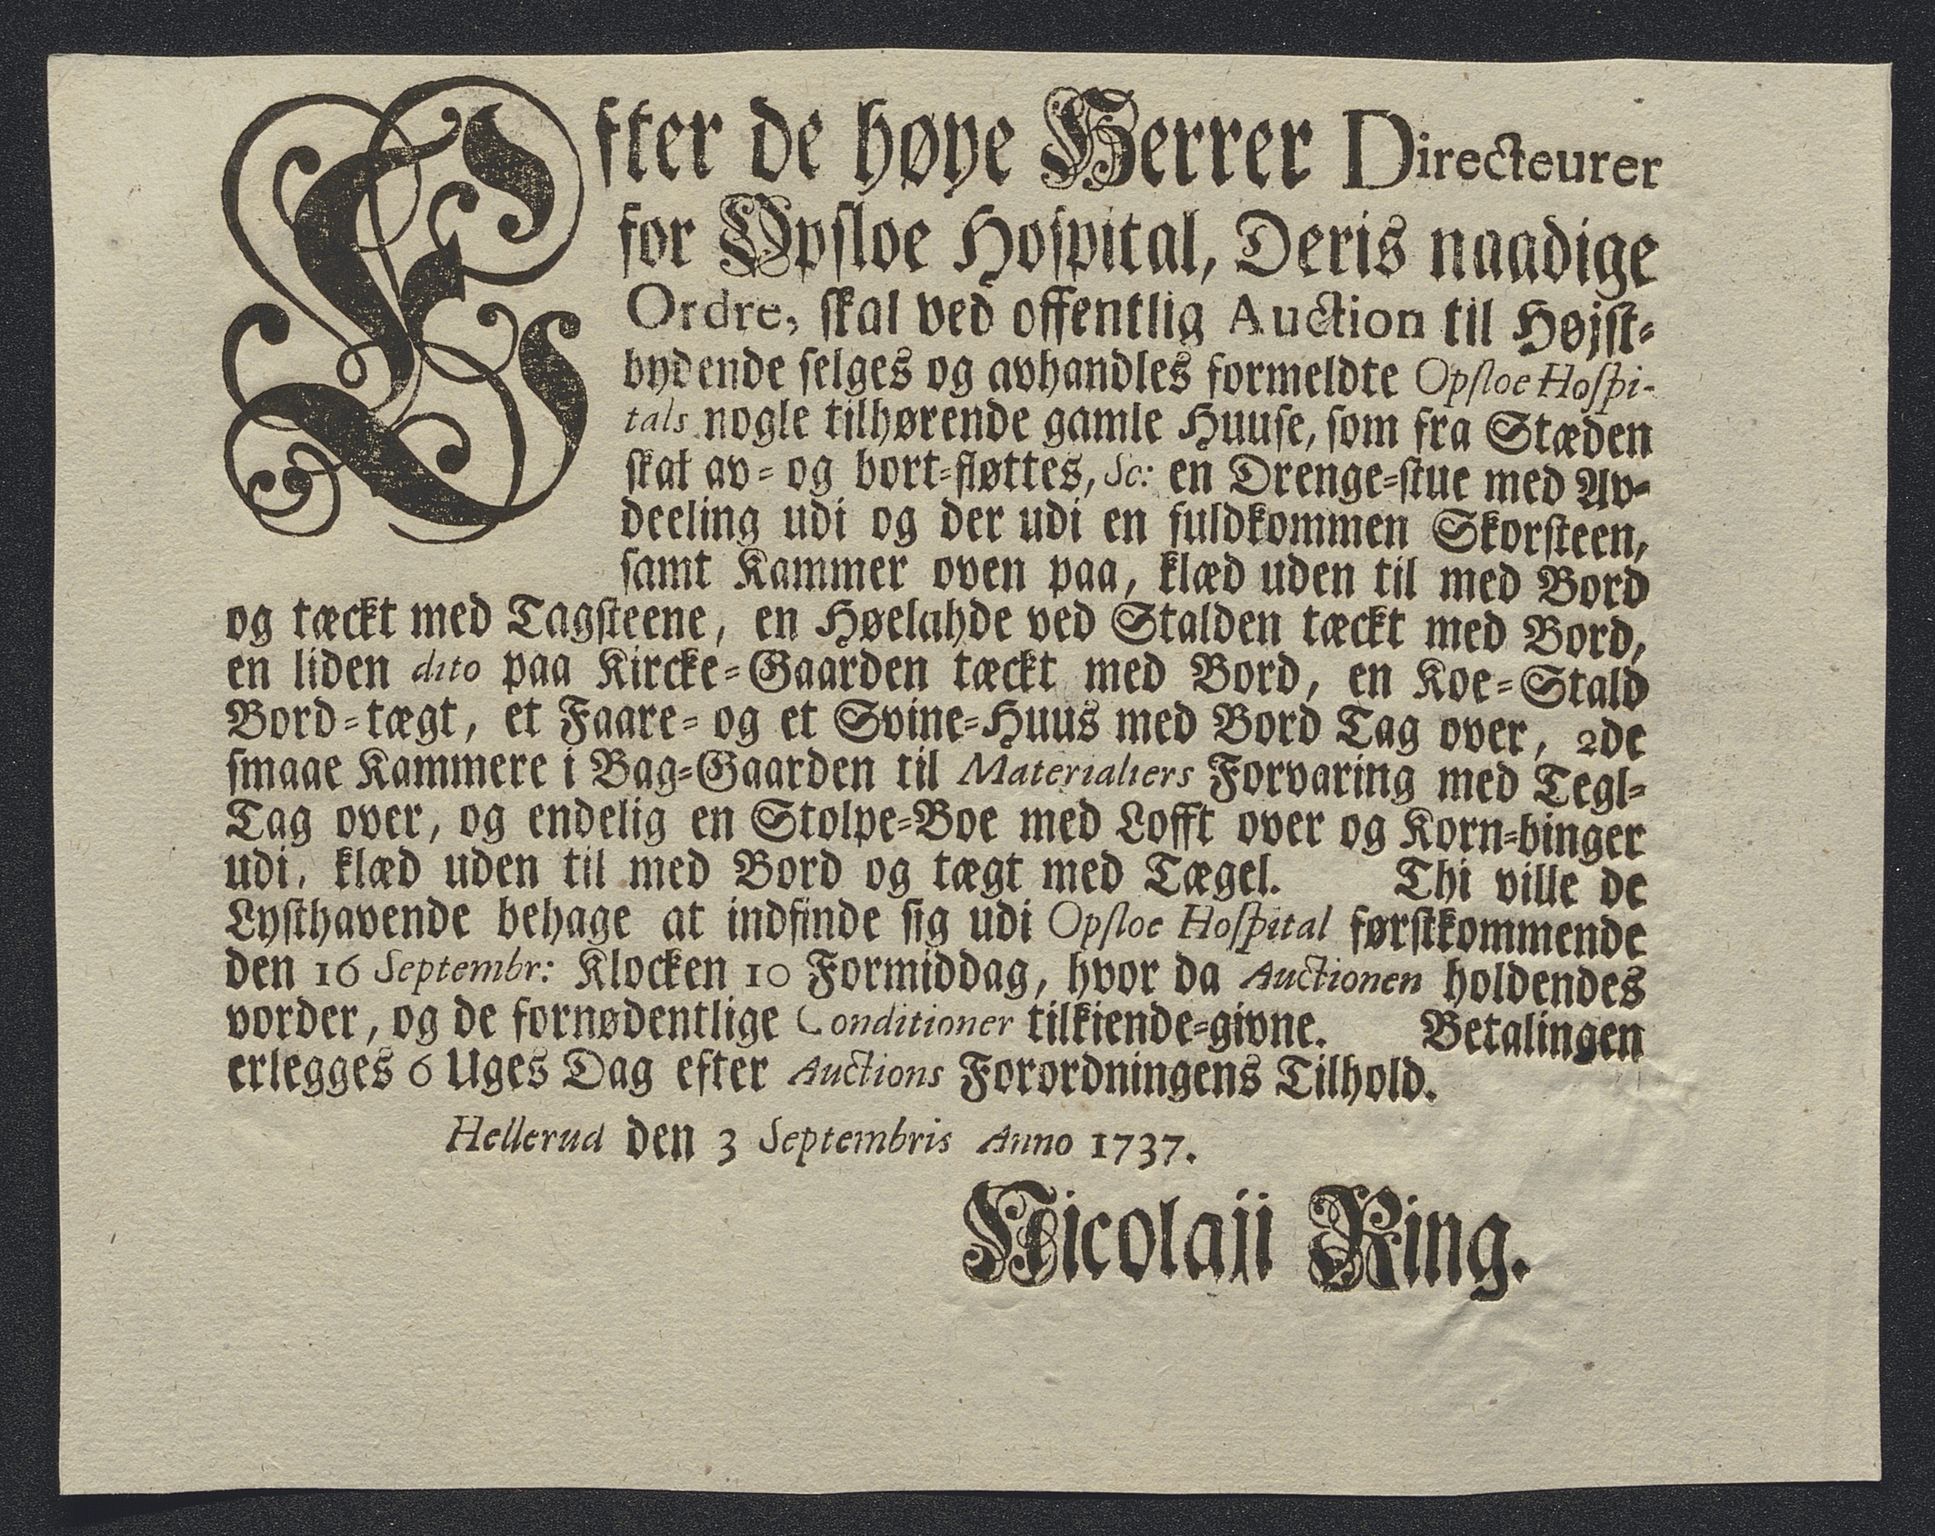 Efter de høye Herrer Directeurer
for Opsloe Hospital, Deris naadige
Ordre, skal ved offentlig Auction til Højst-
bydende selges og avhandles formeldte Opsloe Hospi-
tals nogle tilhørende gamle Huuse, som fra Stæden
skal av- og bort-fløttes, Sc: en Drenge-stue med Av-
deeling udi og der udi en fuldkommen Skorsteen,
samt Kammer oven paa, klæd uden til med Bord
og tæckt med Tagsteene, en Høelahde ved Stalden tæckt med Bord,
en liden dito paa Kircke-Gaarden tæckt med Bord, en Koe-Stald
Bord-tægt, et Faare- og et Svine-Huus med Bord Tag over, 2de
smaae Kammere i Bag-Gaarden til Materialiers Forvaring med Tegl-
Tag over, og endelig en Stolpe-Boe med Lofft over og Korn-binger
udi, klæd uden til med Bord og tægt med Tægel. Thi ville de
Lysthavende behage at indfinde sig udi Opsloe Hospital førstkommende
den 16 Septembr: Klocken 10 Formiddag, hvor da Auctionen holdendes
vorder, og de fornødentlige Conditioner tilkiende-givne. Betalingen
erlegges 6 Uges Dag efter Auctions Forordningens Tilhold.
Hellerud den 3 Septembris Anno 1737.
Nicolaji Ring.